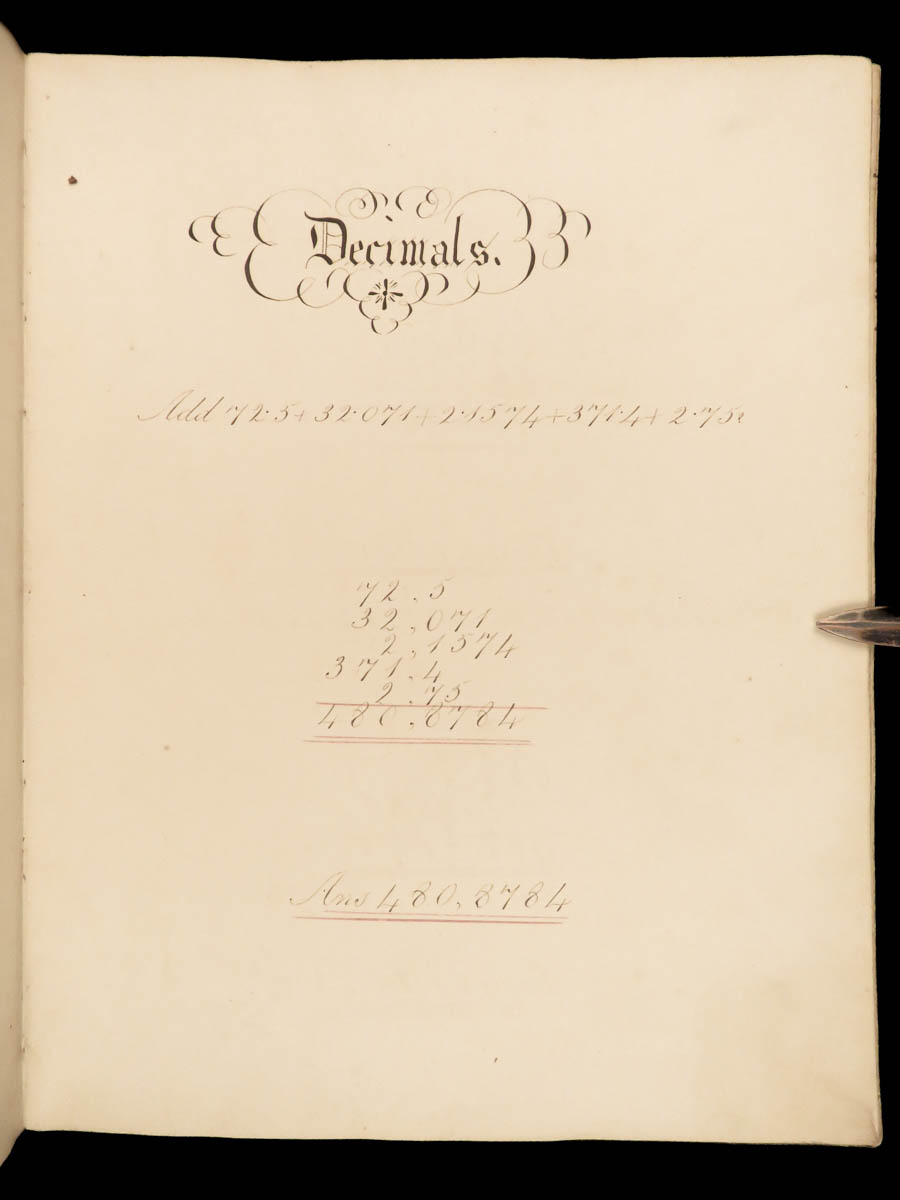 Decimals.
Add 72·5+32·071+2·1574+371·4+2·75?
72.5
32.071
2.1574
371.4
2.75
480.8784
Ans 480.8784